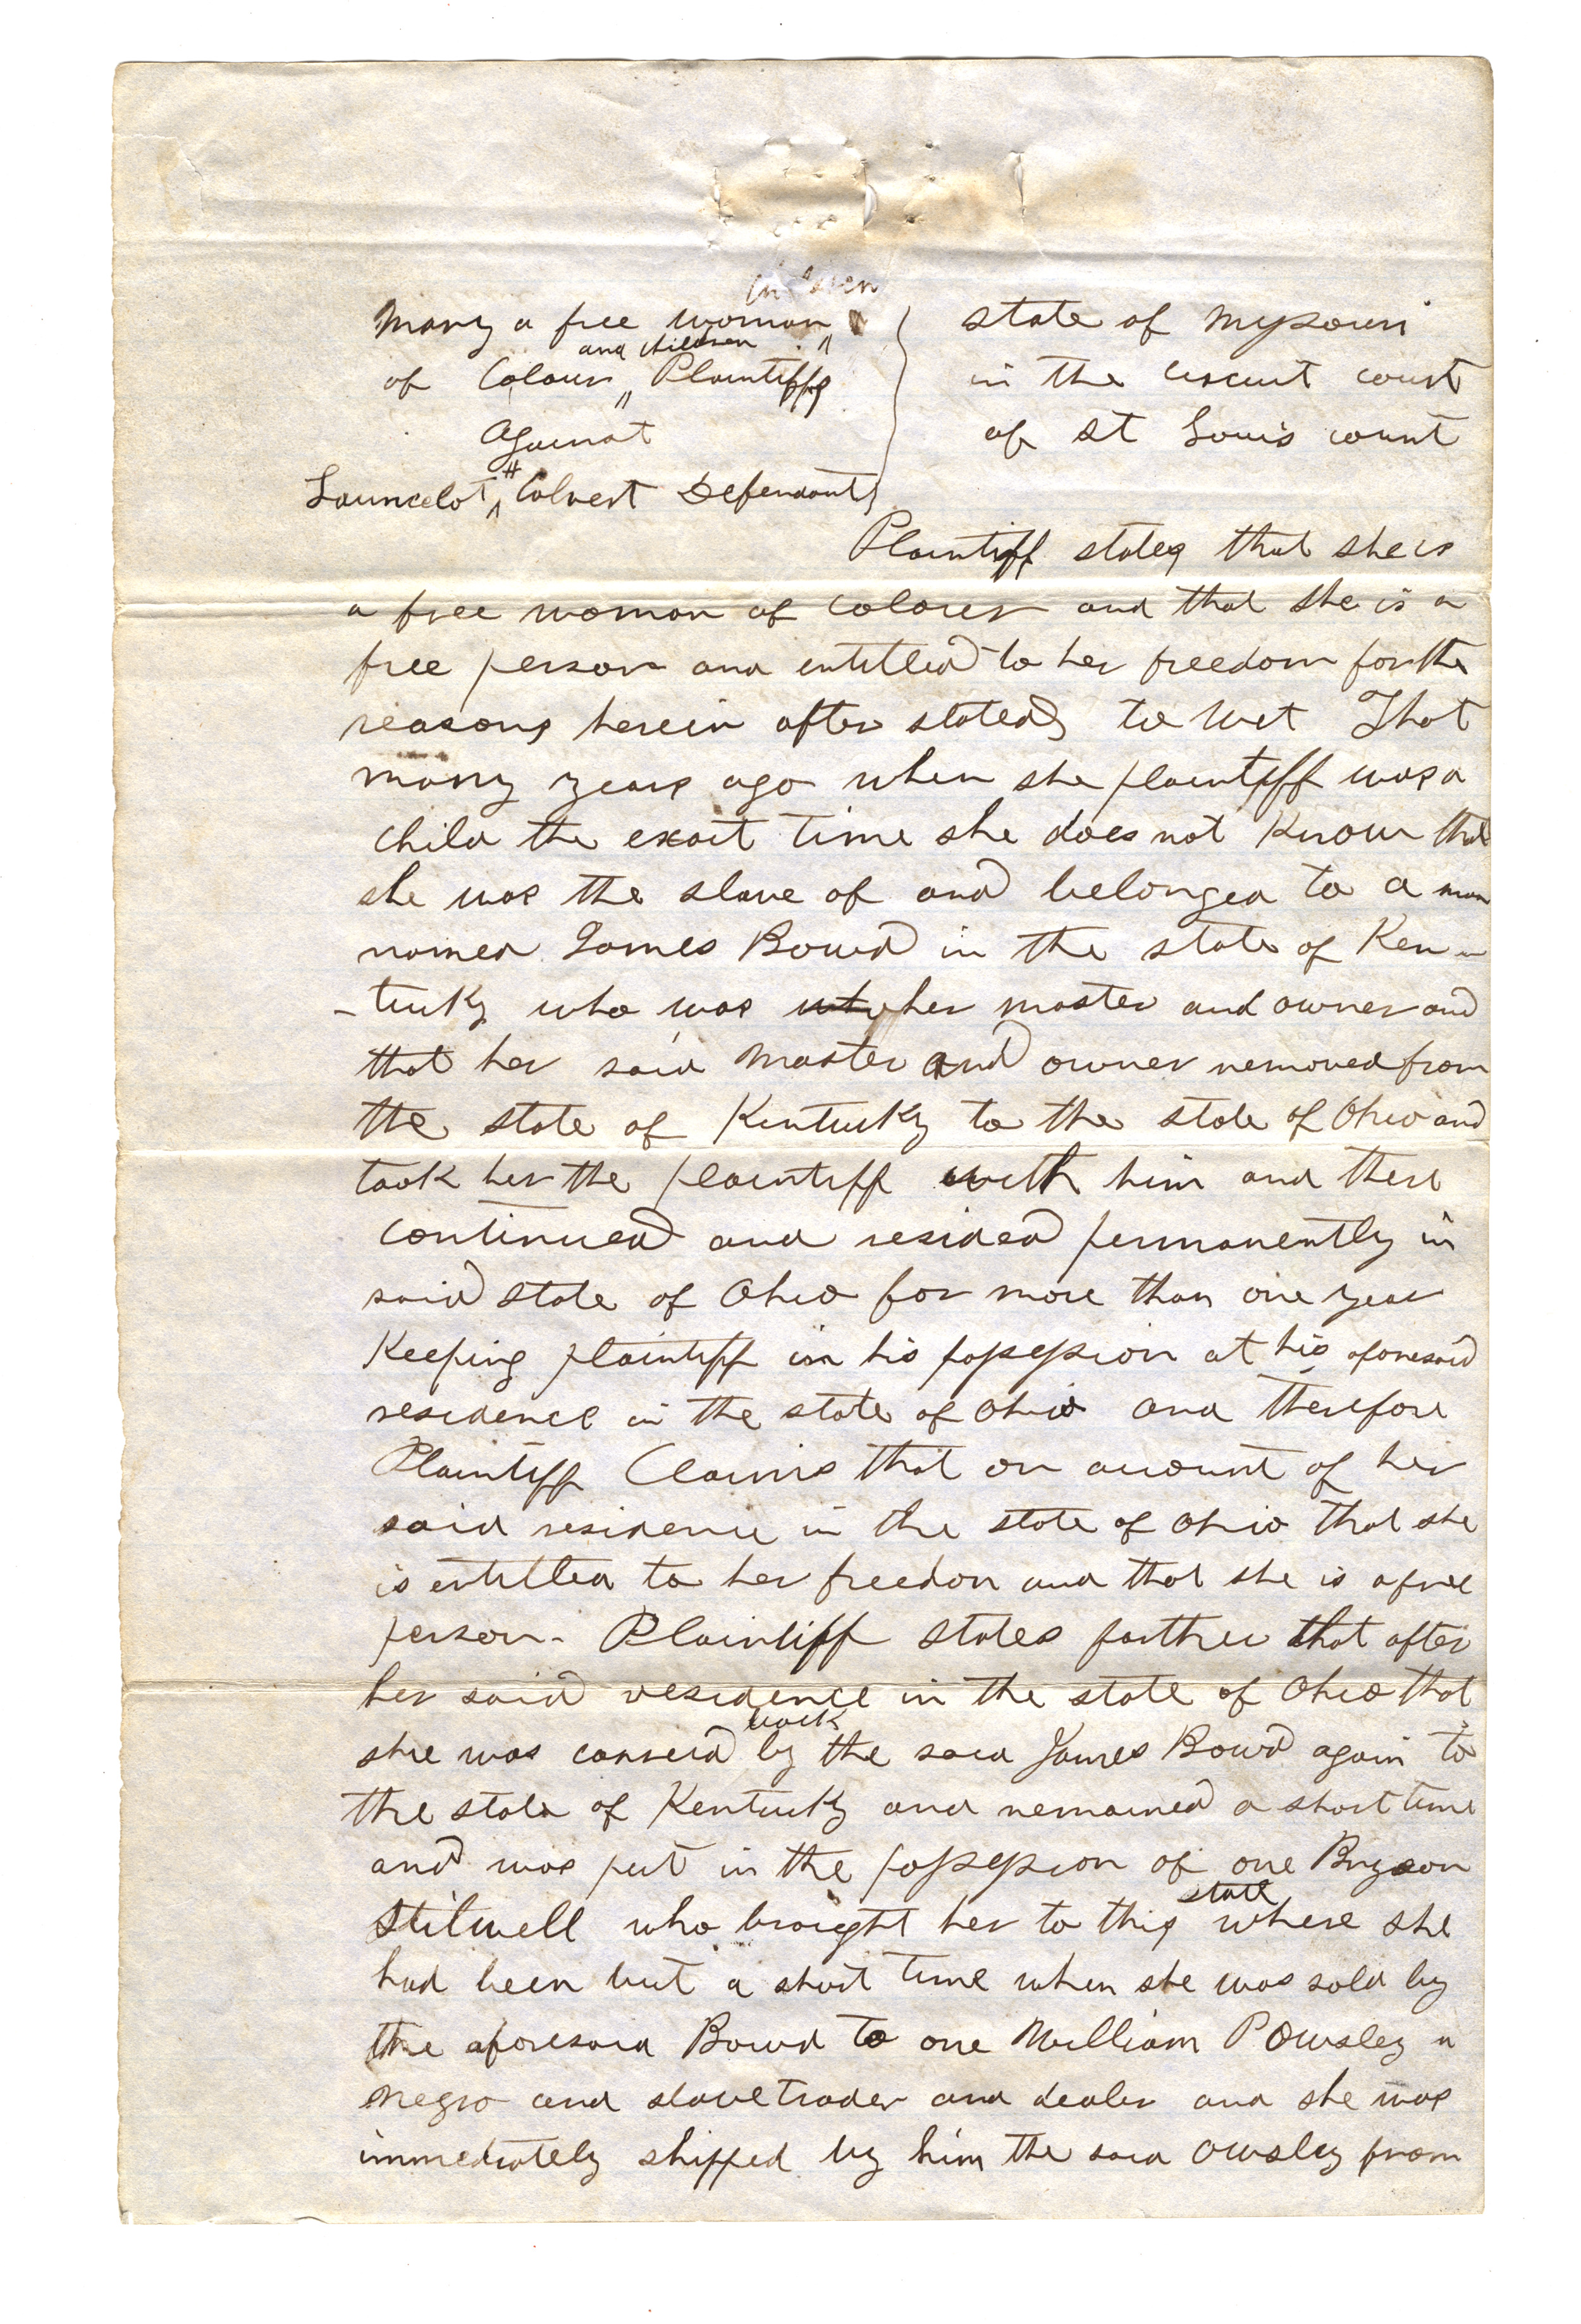 Mary a free woman
and children
of Colour Plaintiffs
Against
Launcelot H Calvert Defendant
State of Missouri
in the Circuit court
of St Louis count
Plaintiff states that she is
a free woman of colour and that she is a
free person and entitled to her freedom for the
reasons herein after stated to wit That
many years ago when she plaintiff was a
child the exact time she does not Know that
she was the slave of and belonged to a man
named James Bowd in the state of Ken-
-tucky who was her master and owner and
that her said Master and owner removed from
the state of Kentucky to the state of Ohio and
took her the plaintiff with him and there
continued and resided permanently in
said state of Ohio for more than one year
Keeping plaintiff in his possession at his aforesaid
residence in the state of Ohio and therefore
Plaintiff Claims that on account of her
said residence in the state of Ohio that she
is entitled to her freedom and that she is a free
person - Plaintiff states further that after
her said residence in the state of Ohio that
she was conveid back by the said James Bowd again to
the state of Kentucky and remained a short time
and was put in the possession of one Bryson
Stilwell who brought her to this state where she
had been but a short time when she was sold by
the aforesaid Bowd to one William P Owsley a
negro and slave trader and dealer and she was
immediately shipped by him the said Owsley from